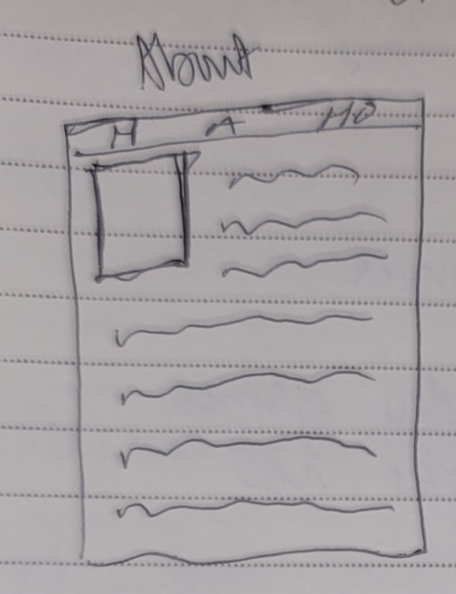 About
H A HO